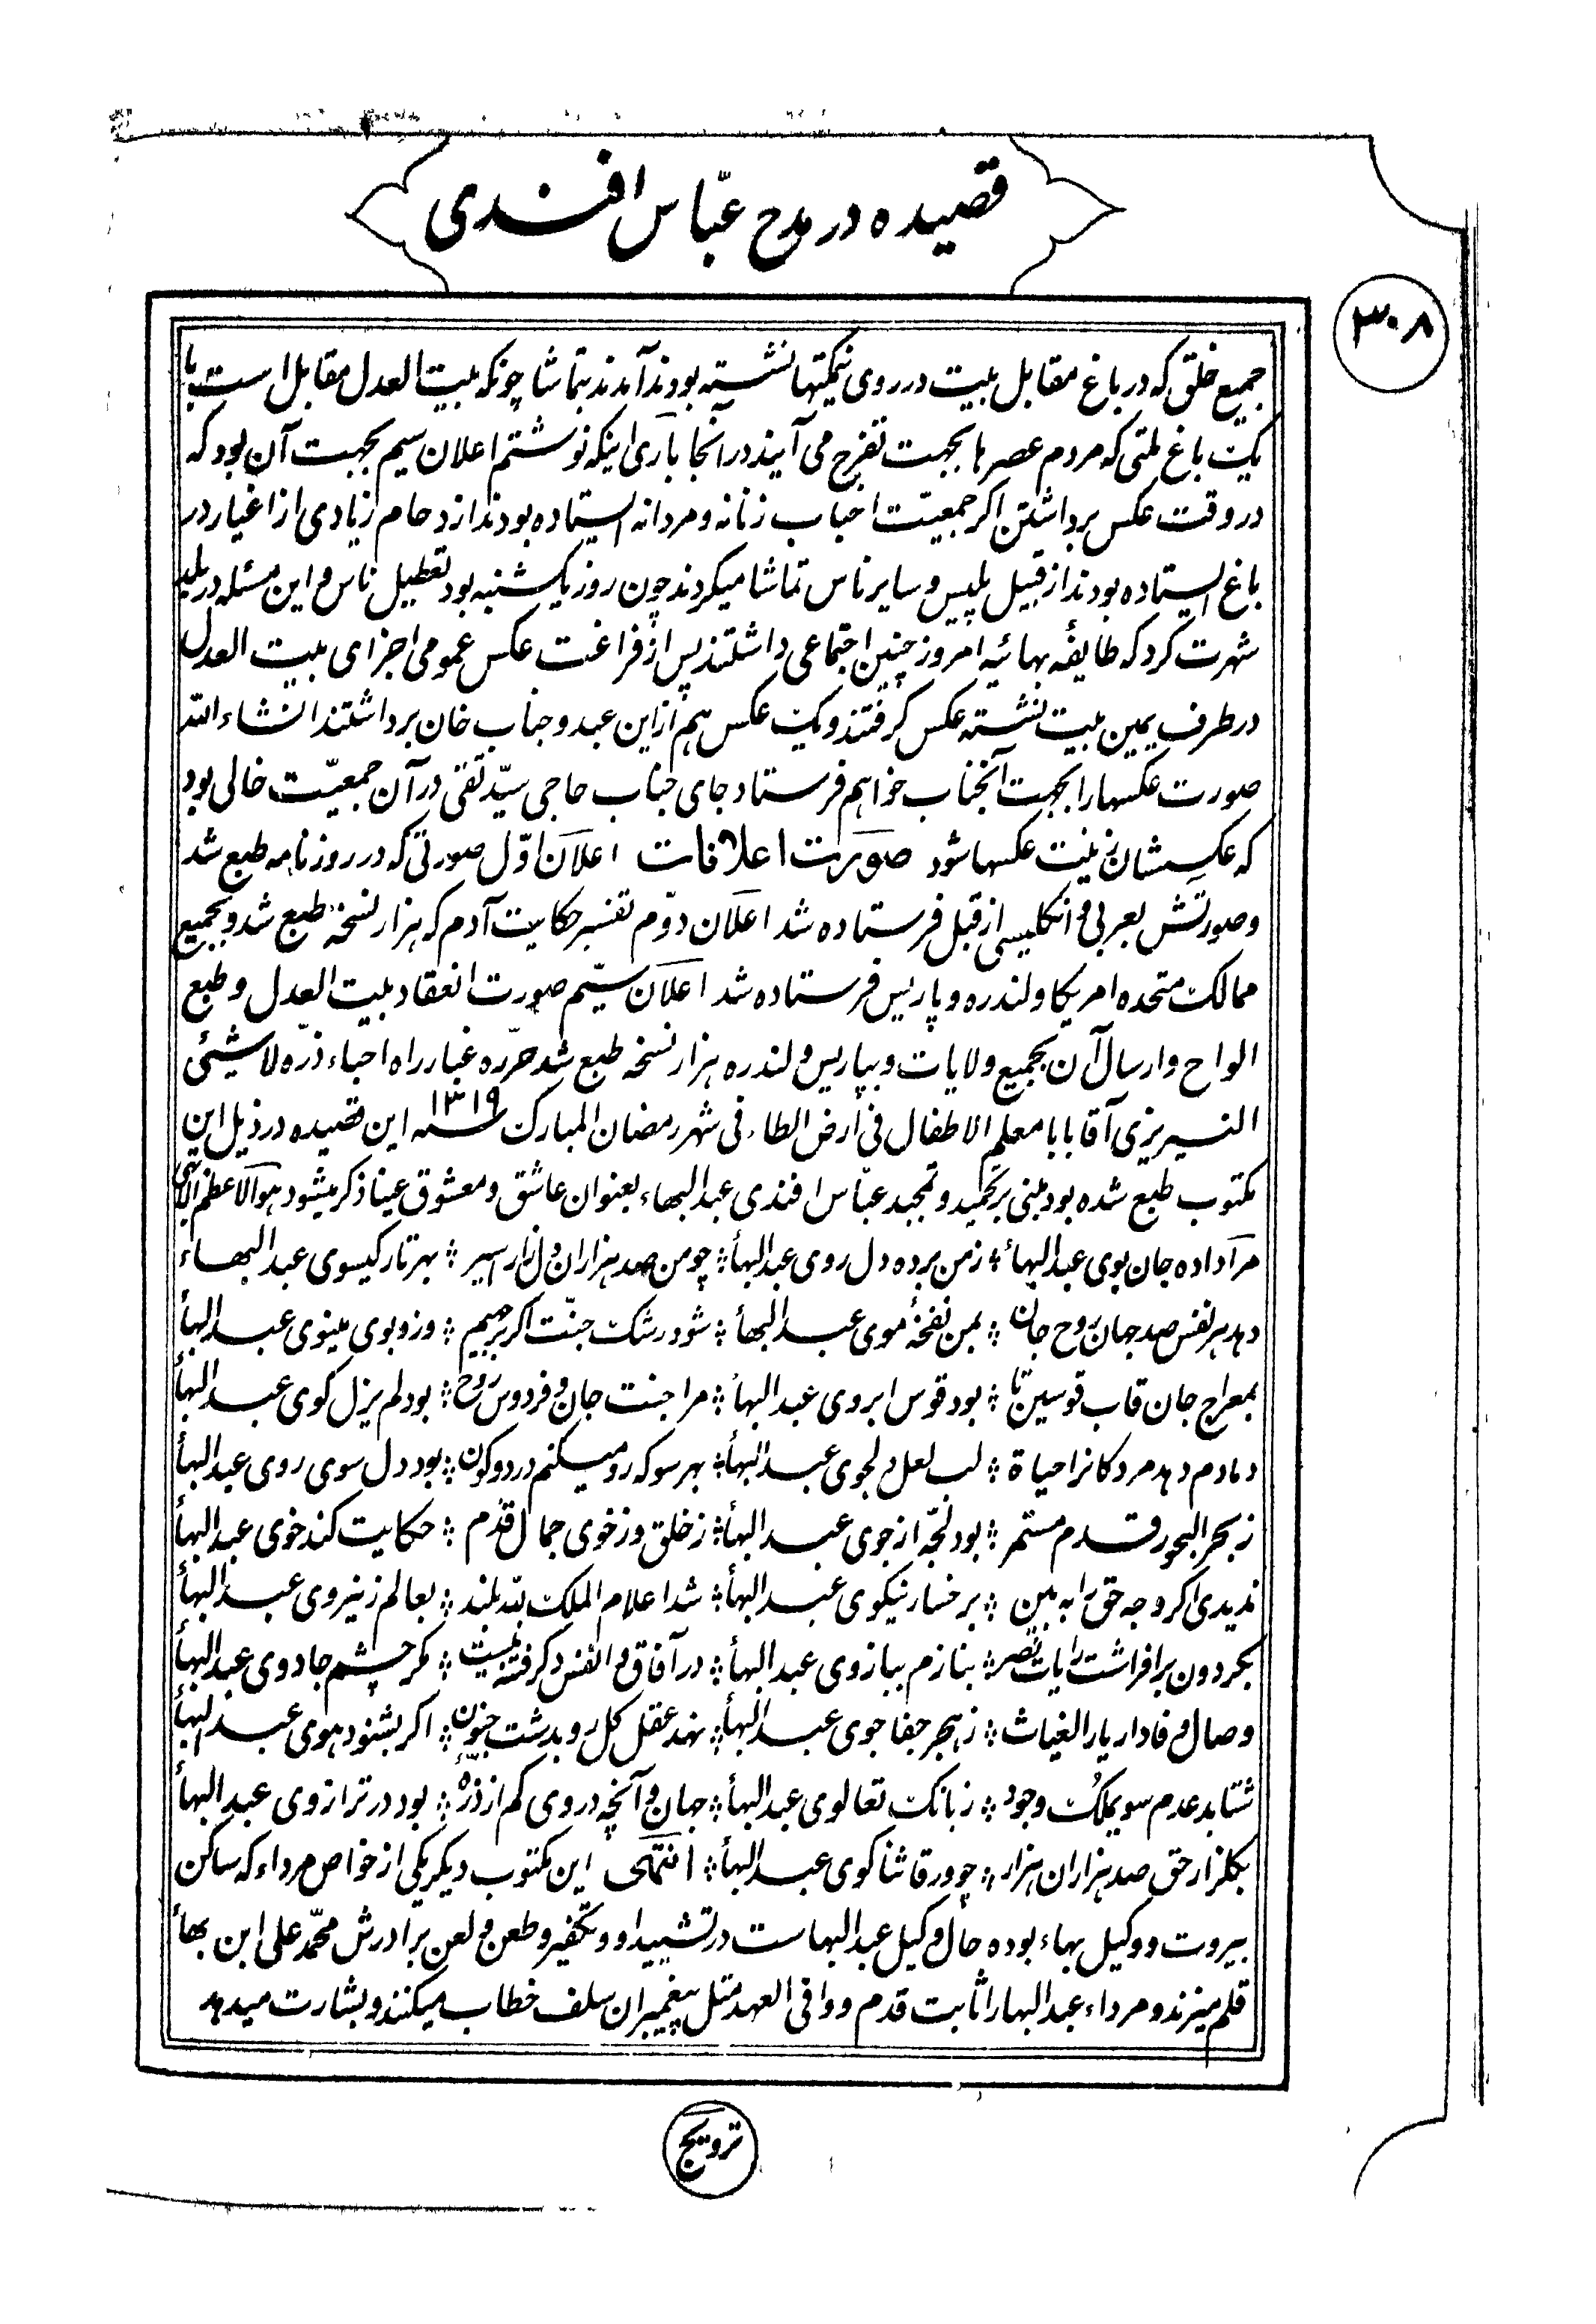 قصیده در مدح عبّاس افندی
۳۰۸
جمیع خلق که در باغ مقابل بیت در روی نیمکتها نشسته بودند آمدند بتماشا چونکه بیت العدل مقابل است با
یک باغ ملتی که مردم عصرها بجهت تفرج می آیند در آنجا باری اینکه نوشتم اعلان سیم بجهت آن بود که
در وقت عکس برداشتن اکر جمعیّت احباب زنانه و مردانه ایستاده بودند ازدحام زیادی از اغیار در
باغ ایستاده بودند از قبیل پلیس و سایر ناس تماشا میکردند چون روز یکشنبه بود تعطیل ناس و این مسئله در بلد
شهرت کرد که طایفهٔ بهائیه امروز چنین اجتماعی داشتند پس از فراغت عکس عمومی اجزای بیت العدل
در طرف یمین بیت نشسته عکس کرفتند و یک عکس هم از این عبد و جناب خان برداشتند انشاء الله
صورت عکسها را بجهت آنجناب خواهم فرستاد جای جناب حاجی سیّد تقی در آن جمعیّت خالی بود
که عکسشان زینت عکسها شود صورت اعلانات اعلان اوّل صورتی که در روزنامه طبع شد
و صورتش بعربی و انکلیسی از قبل فرستاده شد اعلان دوّم تفسیر حکایت آدم که هزار نسخه طبع شد و بجمیع
ممالک متحده امریکا و لندره و پاریس فرستاده شد اعلان سیّم صورت انعقاد بیت العدل و طبع
الواح و ارسال آن بجمیع ولایات و بپاریس و لندره هزار نسخه طبع شد حرّره غبار راه احباء ذرّه لاشیئی
النیریزی آقا بابا معلم الاطفال فی ارض الطاء فی شهر رمضان المبارک سنه ۱۳۱۹ این قصیده در ذیل این
مکتوب طبع شده بود مبنی بر تحمید و تمجید عبّاس افندی عبد البهاء بعنوان عاشق و معشوق عینا ذکر میشود هو الاعظم الابهی
مرا داده جان بوی عبد البهأ ؛ ز من برده دل روی عبد البهأ ؛ چو من صد هزاران دل زار اسیر ؛ بهر تار کیسوی عبد البهاء
دهد هر نفس صد جهان روح جان ؛ بمن نفخهٔ موی عبد البهأ ؛ شود رشک جنّت اکر بر جحیم ؛ وزد بوی مینوی عبد البهأ
بمعراج جان قاب قوسین ما ؛ بود قوس ابروی عبد البهأ ؛ مرا جنت جان و فردوس روح ؛ بود لم یزل کوی عبد البهأ
دمادم دهد مردکانرا حیاة ؛ لب لعل دلجوی عبد البهأ ؛ بهر سو که رو میکنم در دو کون ؛ بود دل سوی روی عبد البهأ
ز بحر البحور قدم مستمر ؛ بود لجّه از جوی عبد البهأ ؛ ز خلق و ز خوی جمال قدم ؛ حکایت کند خوی عبد البهأ
ندیدی اکر وجه حق را به بین ؛ بر خسار نیکوی عبد البهأ ؛ شد اعلام الملک لله بلند ؛ بعالم ز نیروی عبد البهأ
بکردون برافراشت رایات نصر ؛ بنازم ببازوی عبد البهأ ؛ در آفاق و انفس دکر فتنه نیست ؛ مکر چشم جادوی عبد البهأ
وصال وفادار یار الغیاث ؛ ز هجر جفا جوی عبد البهأ ؛ نهد عقل کل رو بدشت جنون ؛ اکر بشنود هوی عبد البهأ
شتابد عدم سوی ملک وجود ؛ ز بانک تعالوی عبد البهأ ؛ جهان و آنچه در وی کم از ذرّه ؛ بود در ترازوی عبد البهأ
بکلزار حق صد هزاران هزار ؛ چو ورقا ثنا کوی عبد البهأ ؛ انتهی این مکتوب دیکر یکی از خواص مرداء که ساکن
بیروت و وکیل بهاء بوده حال وکیل عبد البهاست در تشیید او و تکفیر و طعن و لعن برادرش محمّد علی ابن بهأ
قلم میزند و مرداء عبد البها را ثابت قدم و وافی العهد مثل پیغمبران سلف خطاب میکنند و بشارت میدهد
ترویج